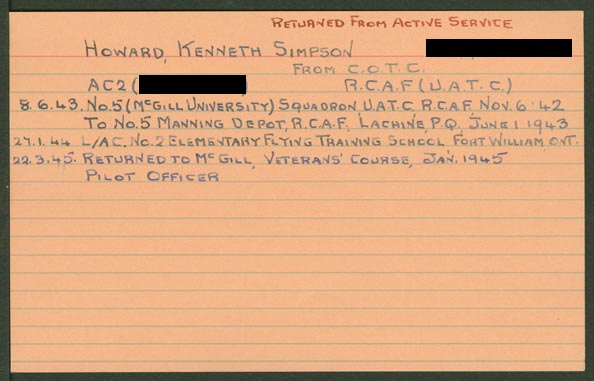 RETURNED FROM ACTIVE SERVICE
HOWARD, KENNETH SIMPSON
FROM C.O.T.C.
AC2 ( ) R.C.A.F (U.A.T.C.)
8.6.43. No.5 (McGILL UNIVERSITY) SQUADRON U.A.T.C. R.C.A.F. NOV. 6 '42
TO No.5 MANNING DEPOT, R.C.A.F. LACHINE, P.Q. JUNE 1 1943
27.1.44 L/AC. No.2 ELEMENTARY FLYING TRAINING SCHOOL FORT WILLIAM, ONT.
22.3.45. RETURNED TO McGILL, VETERANS' COURSE, JAN. 1945
PILOT OFFICER